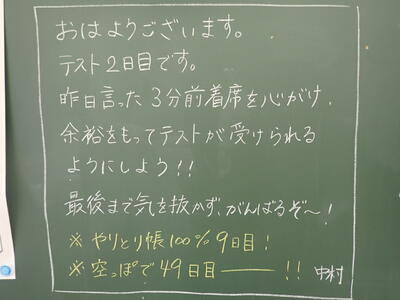 おはようございます。
テスト2日目です。
昨日言った3分前着席を心がけ、
余裕をもってテストが受けられる
ようにしよう!!
最後まで気を抜かず、がんばるぞ〜!
※やりとり帳100%9日目!
※空っぽで49日目――!! 中村